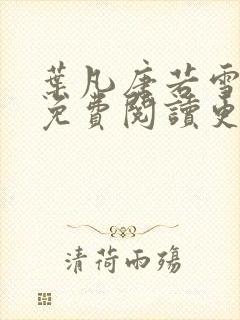 葉凡唐若雪
免費閱讀更
清荷雨殤